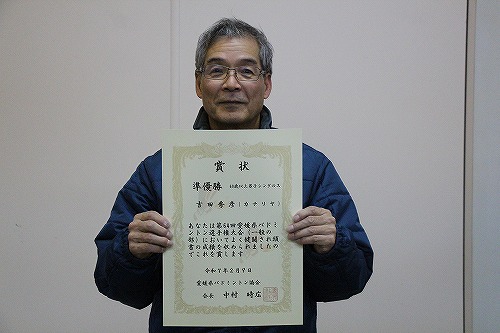 賞状
準優勝 60歳以上男子シングルス
吉田秀彦(カナリヤ)
あなたは第64回愛媛県バドミ
ントン選手権大会(一般の
部)においてよく健闘され頭
書の成績を収められましたの
でこれを賞します
令和7年2月9日
愛媛県バドミントン協会
会長 中村時広